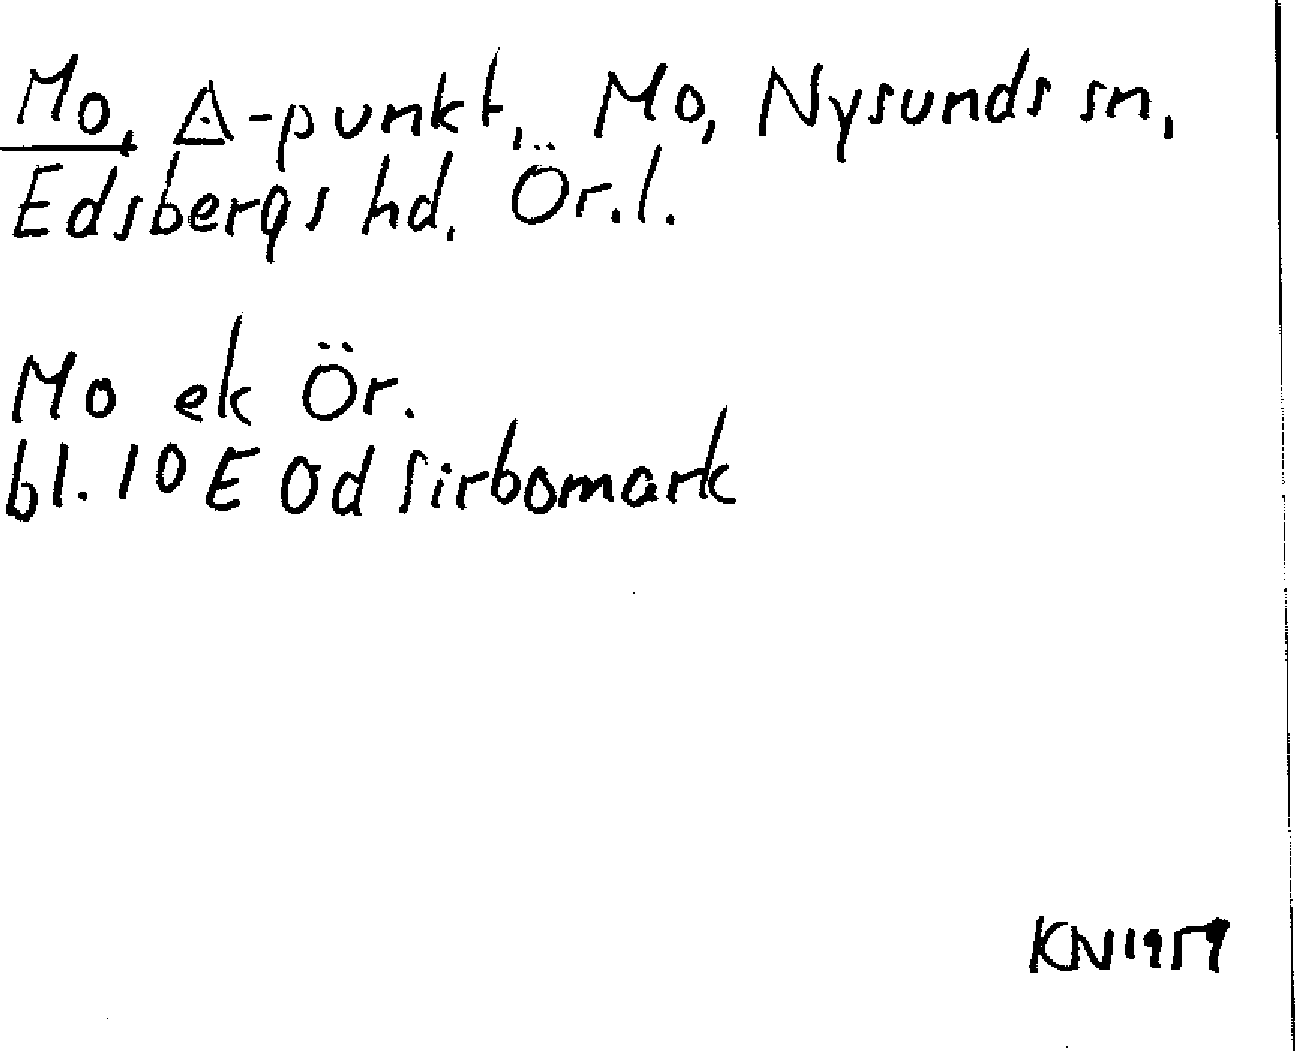 Mo, △-punkt, Mo, Nysunds sn,
Edsbergs hd. Ör.l.
Mo ek Ör.
bl. 10 E 0d Sirbomark
KN 1959